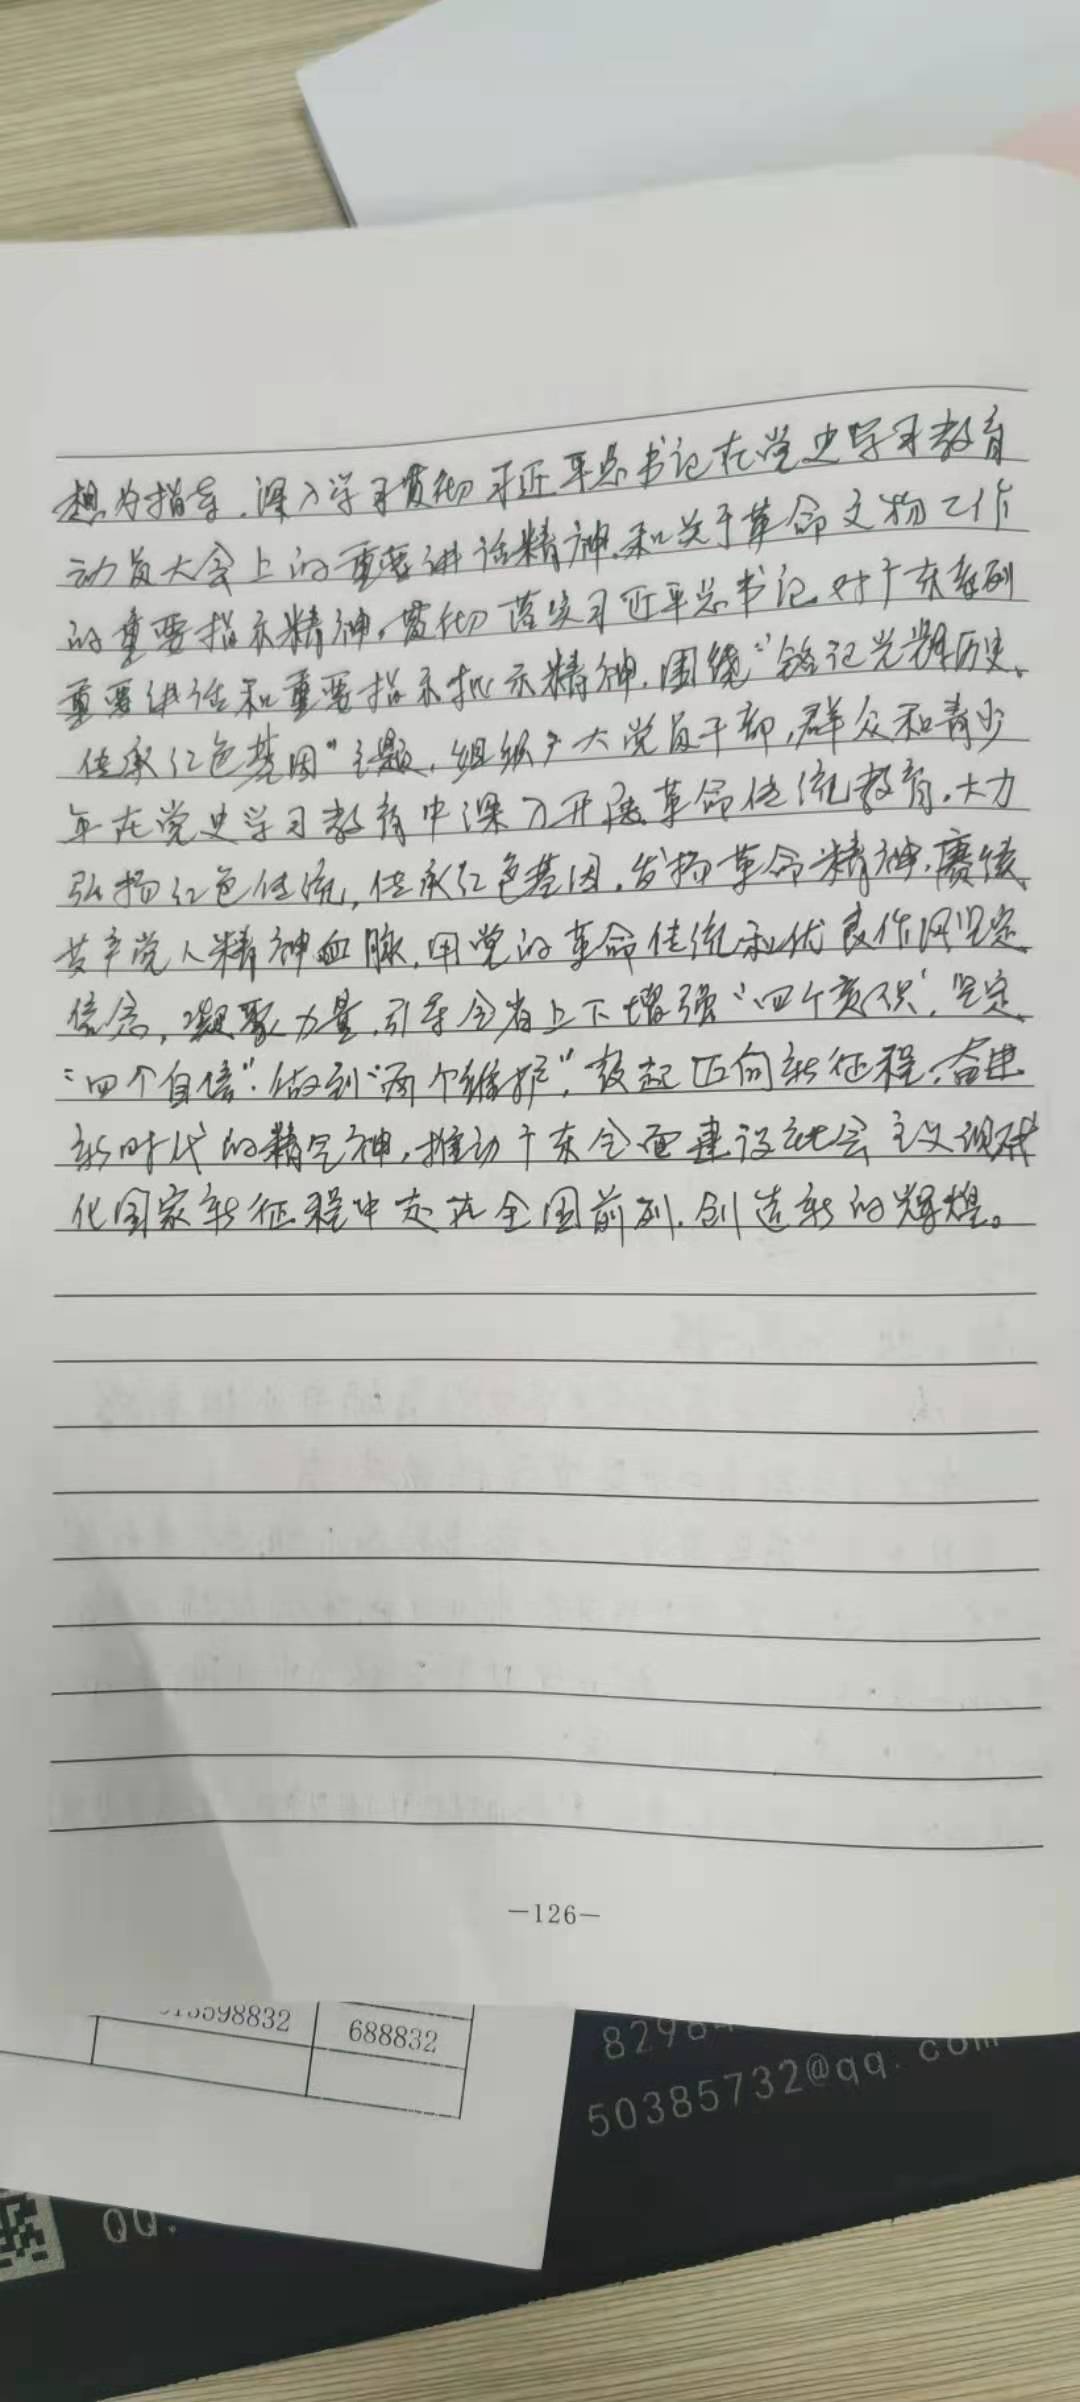 想为指导，深入学习贯彻习近平总书记在党史学习教育
动员大会上的重要讲话精神、和关于革命文物工作
的重要指示精神，贯彻落实习近平总书记对广东系列
重要讲话和重要指示批示精神，围绕“铭记光辉历史、
传承红色基因”主题，组织广大党员干部，群众和青少
年在党史学习教育中深入开展革命传统教育，大力
弘扬红色传统，传承红色基因，发扬革命精神，赓续
共产党人精神血脉，用党的革命传统和优良作风坚定
信念，凝聚力量，引导全省上下增强“四个意识”，坚定
“四个自信”，做到“两个维护”，鼓起迈向新征程、奋进
新时代的精气神，推动广东全面建设社会主义现代
化国家新征程中走在全国前列，创造新的辉煌。
—126—
13598832
688832
8298
50385732@qq.com
QQ: